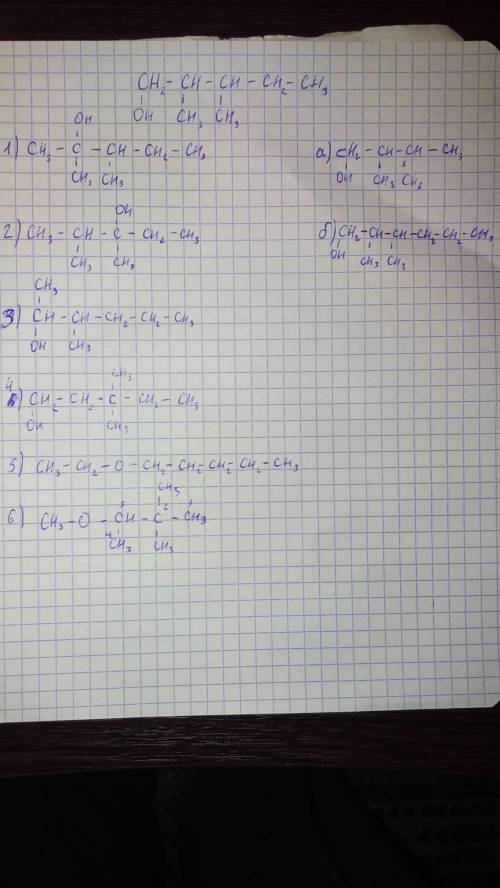 CH₂ - CH - CH - CH₂ - CH₃
OH CH₃ CH₃
OH
1) CH₃ - C - CH - CH₂ - CH₃ а) CH₂ - CH - CH - CH₃
CH₃ CH₃ OH CH₃ CH₃
OH
2) CH₃ - CH - C - CH₂ - CH₃ б) CH₂ - CH - CH - CH₂ - CH₂ - CH₃
CH₃ CH₃ OH CH₃ CH₃
CH₃
3) CH - CH - CH₂ - CH₂ - CH₃
OH CH₃
CH₃
4) CH₂ - CH₂ - C - CH₂ - CH₃
OH CH₃
5) CH₃ - CH₂ - O - CH₂ - CH₂ - CH₂ - CH₂ - CH₃
CH₃
6) CH₃ - O - CH - C - CH₃
CH₃ CH₃